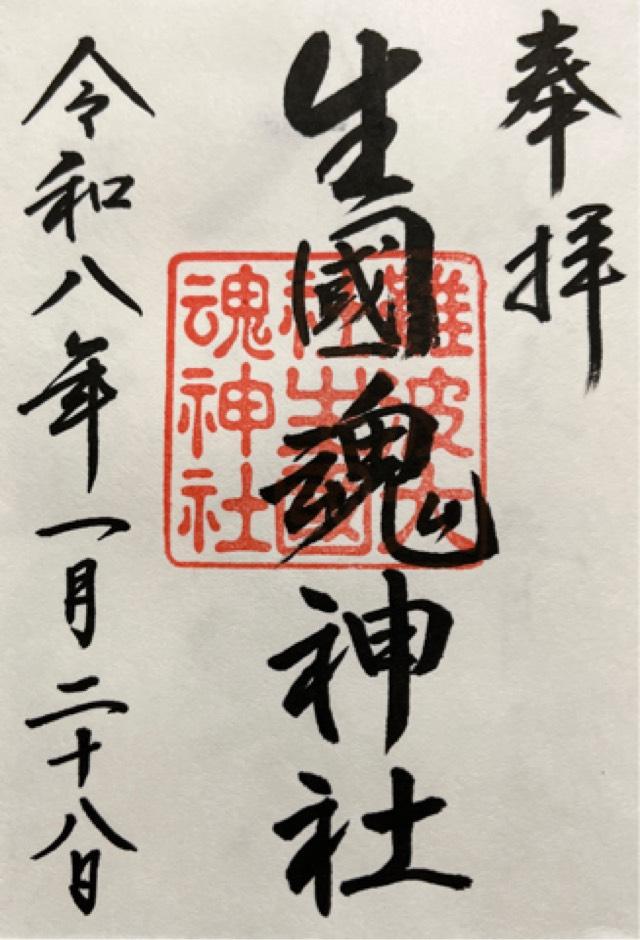 奉拝
生國魂神社
難波大
社生國
魂神社
令和八年一月二十八日